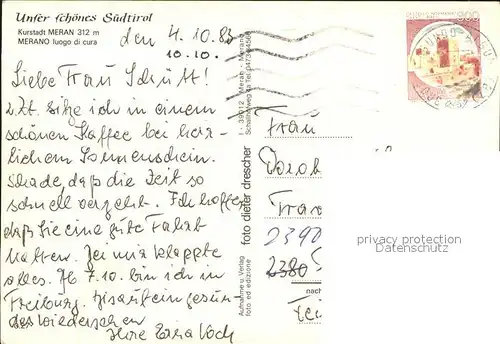 Unser schönes Südtirol
Kurstadt MERAN 312 m
MERANO luogo di cura
den 4.10.83
10.10.
Liebe Frau Schütt!
z.Zt. sitze ich in einem
schönen Kaffee bei herr-
lichem Sonnenschein.
Schade, daß die Zeit so
schnell vergeht. Ich hoffe,
daß Sie eine gute Fahrt
hatten. Bei mir klappte
alles. Ab 7.10. bin ich in
Freiburg. Bis auf ein gesun-
des Wiedersehen
Ihre
Aufnahme u. Verlag
foto ed edizione
foto dieter drescher
I - 39012 Meran - Merano
Frau
2390
2380
nach
privacy protection
Datenschutz